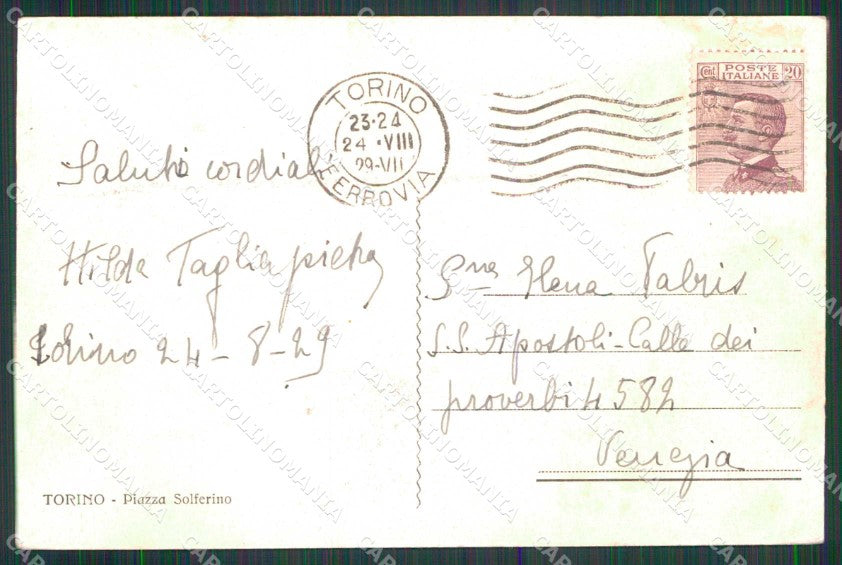 TORINO
23·24
24 ·VIII
29-VII
FERROVIA
POSTE
Cent ITALIANE 20
Saluti cordiali
Hilda Tagliapietra
Torino 24-8-29
S.na Elena Fabris
S.S. Apostoli-Calle dei
proverbi 4582
Venezia
TORINO - Piazza Solferino
CARTOLINOMANIA